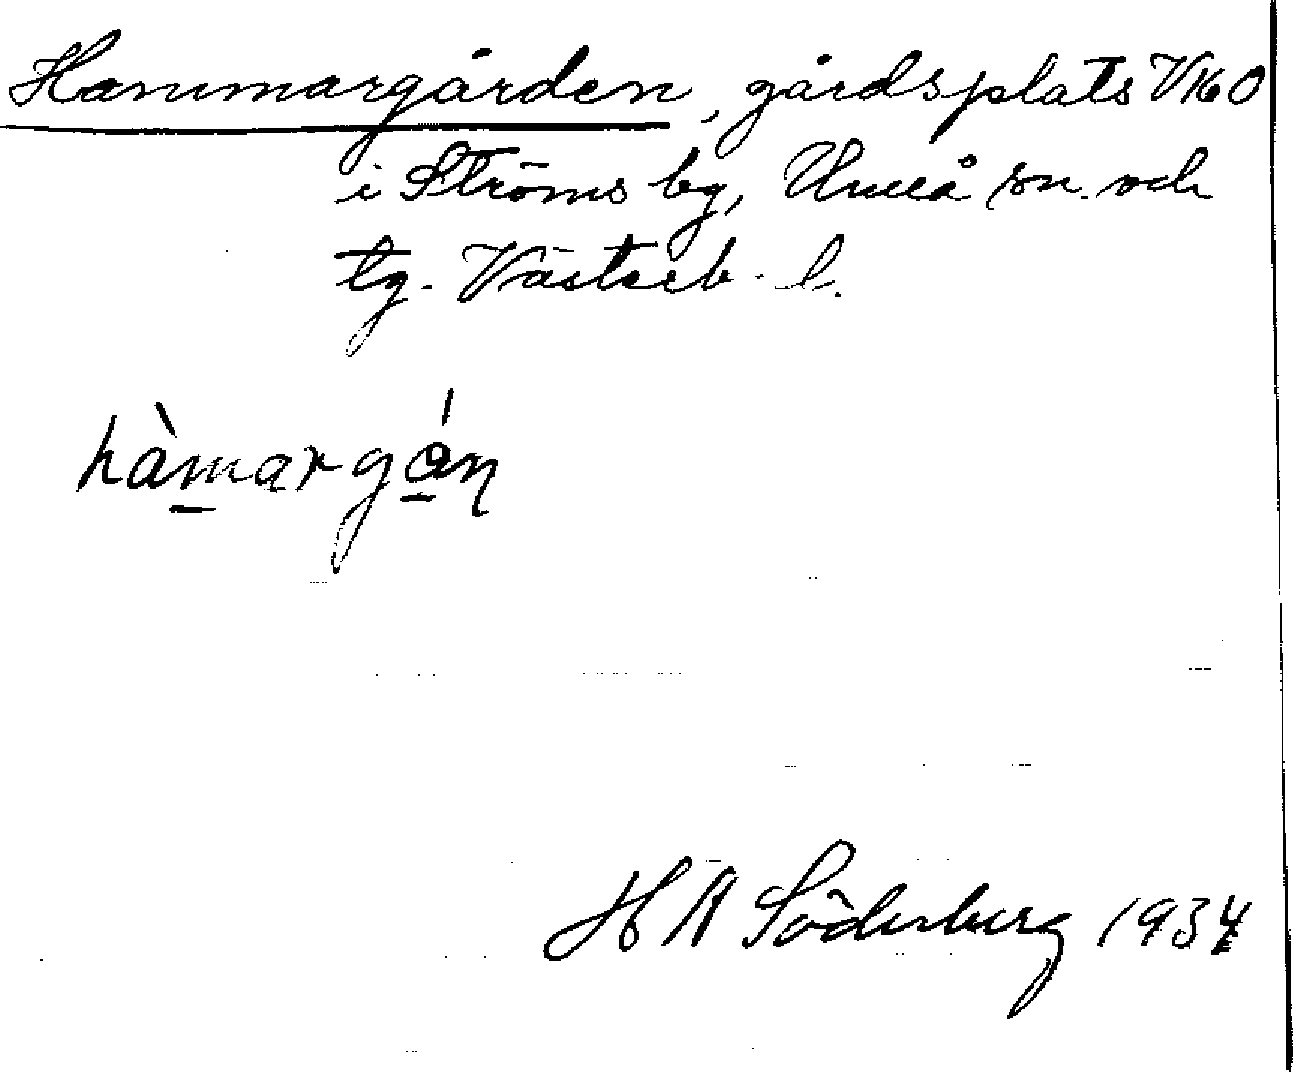 Hammargården, gårdsplats V16O
i Ströms by, Umeå sn. och
tg. Västerb. l.
hàmargån
H A Söderberg 1934